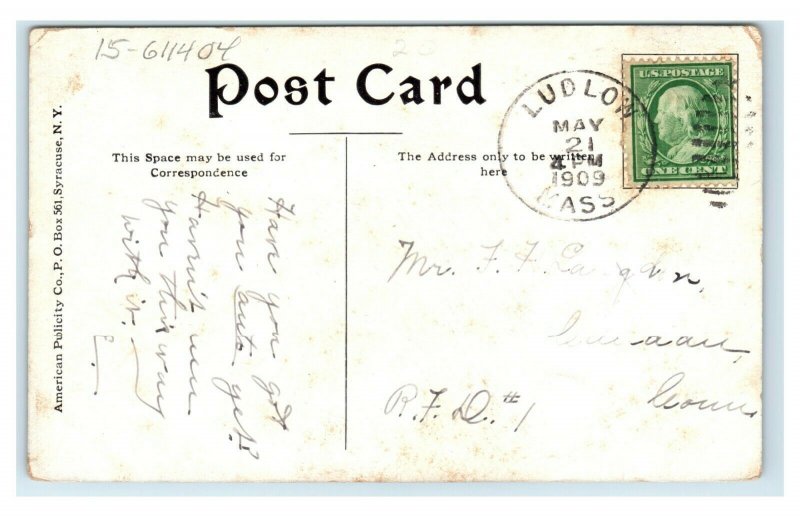 15-611404
Post Card
This Space may be used for
Correspondence
The Address only to be written
here
American Publicity Co., P. O. Box 561, Syracuse, N. Y.
U.S. POSTAGE
ONE CENT
LUDLOW
MAY
21
4 PM
1909
MASS
Have you got
you auto yet?
Havn't seen
you this way
with it.
Mr. F. F. Langdon,
Conn
R.F.D. #1